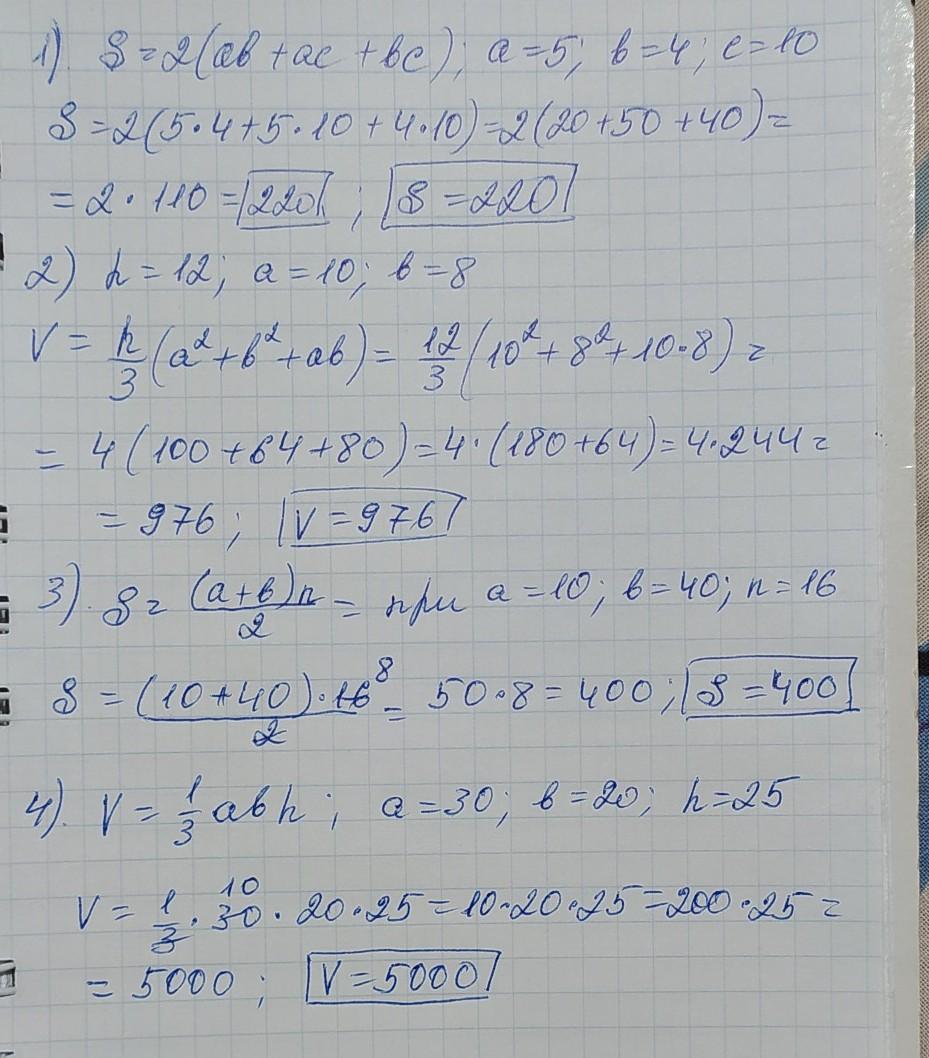 1). S=2(ab+ac+bc); a=5; b=4; c=10
S=2(5·4+5·10+4·10)=2(20+50+40)=
=2·110=220; S=220
2) h=12; a=10; b=8
V = h/3 (a²+b²+ab) = 12/3 (10²+8²+10·8) =
= 4(100+64+80)=4·(180+64)=4·244=
= 976; V=976
3). S = (a+b)n/2 = при a=10; b=40; n=16
S = (10+40)·16/2 8 = 50·8=400; S=400
4). V = 1/3 abh; a=30; b=20; h=25
10
V = 1/3 · 30 · 20·25=10·20·25=200·25=
= 5000; V=5000